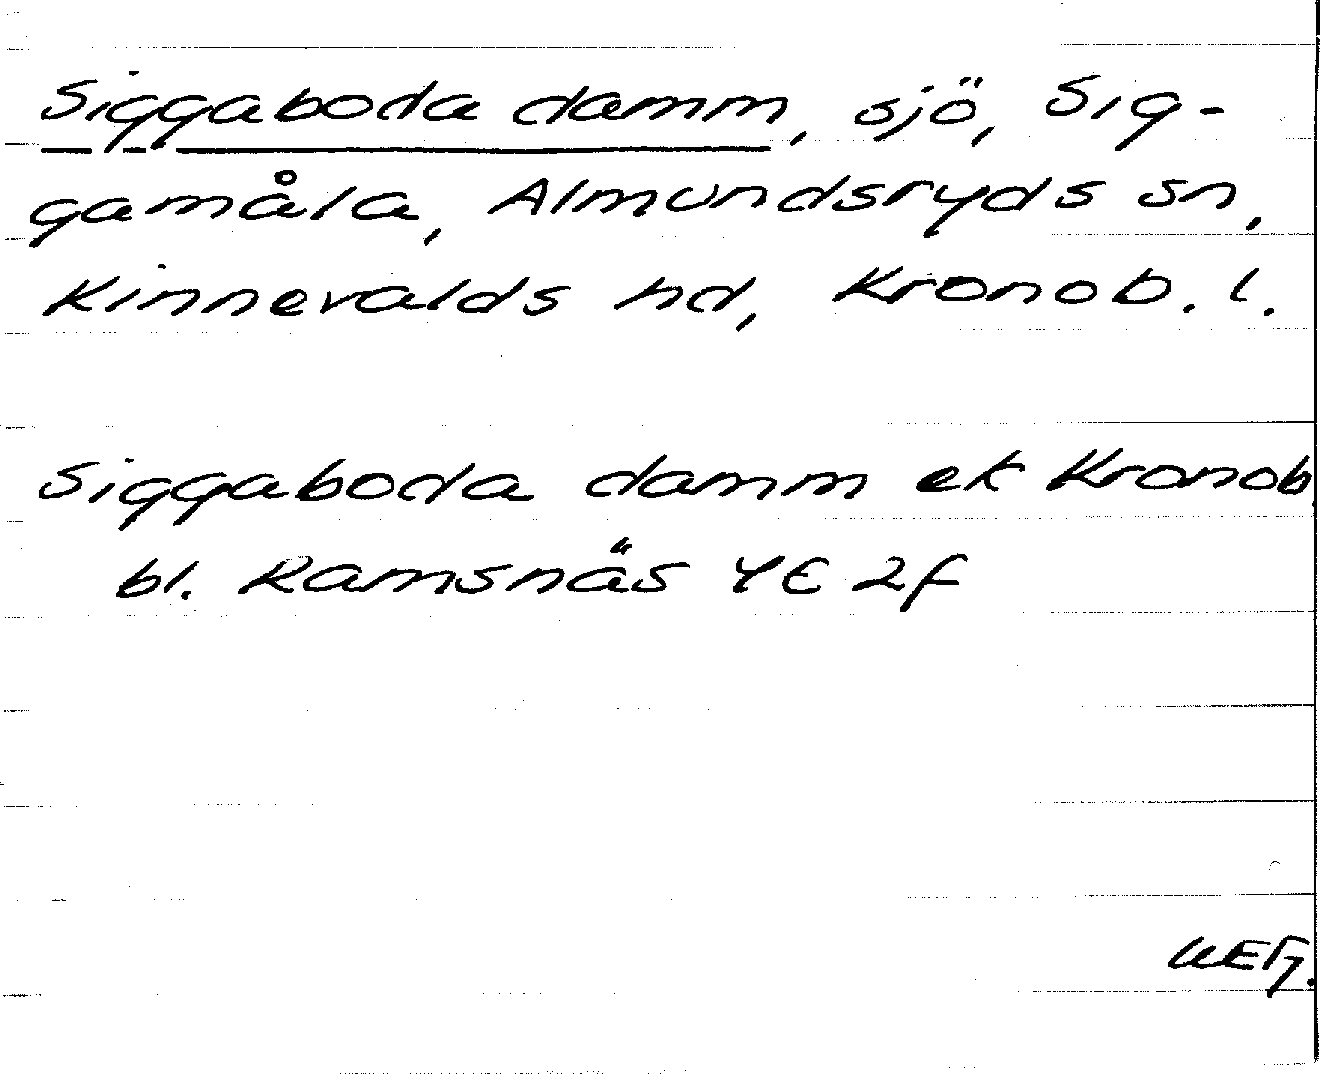 Siggaboda damm, sjö, Sig-
gamåla, Almundsryds sn,
Kinnevalds hd, Kronob. l.
Siggaboda damm ek Kronob.
bl. Ramsnäs 4E 2f